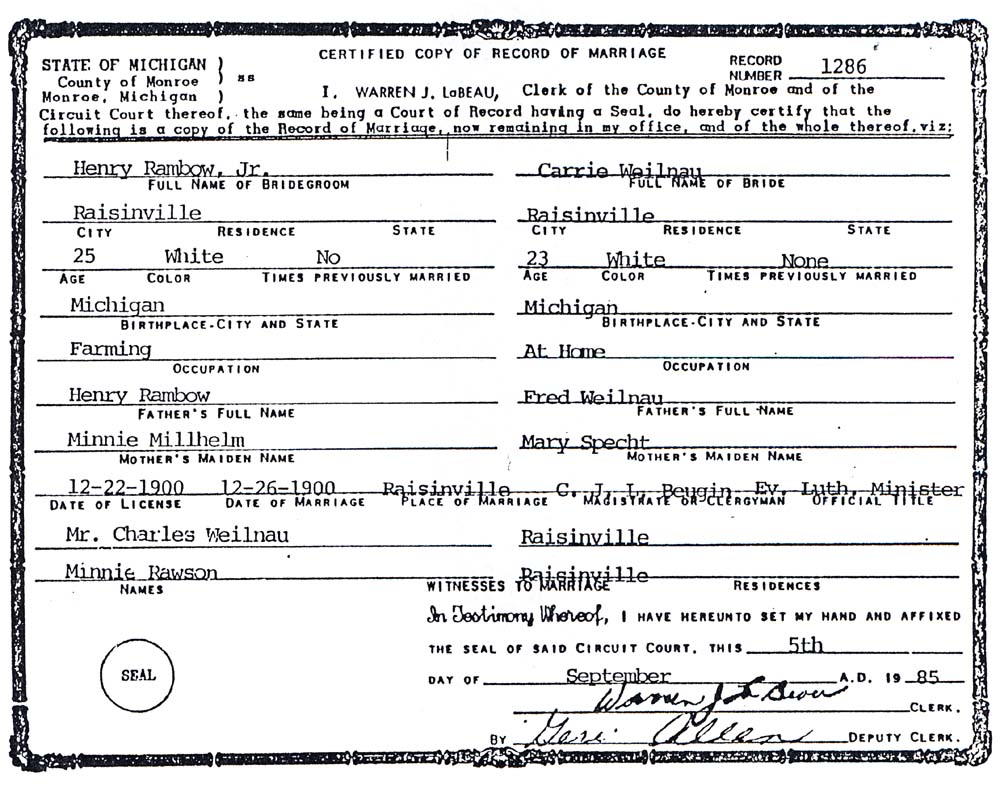 CERTIFIED COPY OF RECORD OF MARRIAGE
STATE OF MICHIGAN )
County of Monroe ) ss
Monroe, Michigan )
RECORD NUMBER 1286
I, WARREN J. LaBEAU, Clerk of the County of Monroe and of the
Circuit Court thereof, the same being a Court of Record having a Seal, do hereby certify that the
following is a copy of the Record of Marriage, now remaining in my office, and of the whole thereof, viz:
Henry Rambow, Jr. Carrie Weilnau
FULL NAME OF BRIDEGROOM FULL NAME OF BRIDE
Raisinville Raisinville
CITY RESIDENCE STATE CITY RESIDENCE STATE
25 White No 23 White None
AGE COLOR TIMES PREVIOUSLY MARRIED AGE COLOR TIMES PREVIOUSLY MARRIED
Michigan Michigan
BIRTHPLACE-CITY AND STATE BIRTHPLACE-CITY AND STATE
Farming At Home
OCCUPATION OCCUPATION
Henry Rambow Fred Weilnau
FATHER'S FULL NAME FATHER'S FULL NAME
Minnie Millhelm Mary Specht
MOTHER'S MAIDEN NAME MOTHER'S MAIDEN NAME
12-22-1900 12-26-1900 Raisinville C. J. L. Beugin Ev. Luth. Minister
DATE OF LICENSE DATE OF MARRIAGE PLACE OF MARRIAGE MAGISTRATE OR CLERGYMAN OFFICIAL TITLE
Mr. Charles Weilnau Raisinville
Minnie Rawson Raisinville
NAMES WITNESSES TO MARRIAGE RESIDENCES
In Testimony Whereof, I HAVE HEREUNTO SET MY HAND AND AFFIXED
THE SEAL OF SAID CIRCUIT COURT, THIS 5th
SEAL
DAY OF September A.D. 19 85
Warren J La Beau CLERK.
BY Geri Allen DEPUTY CLERK.